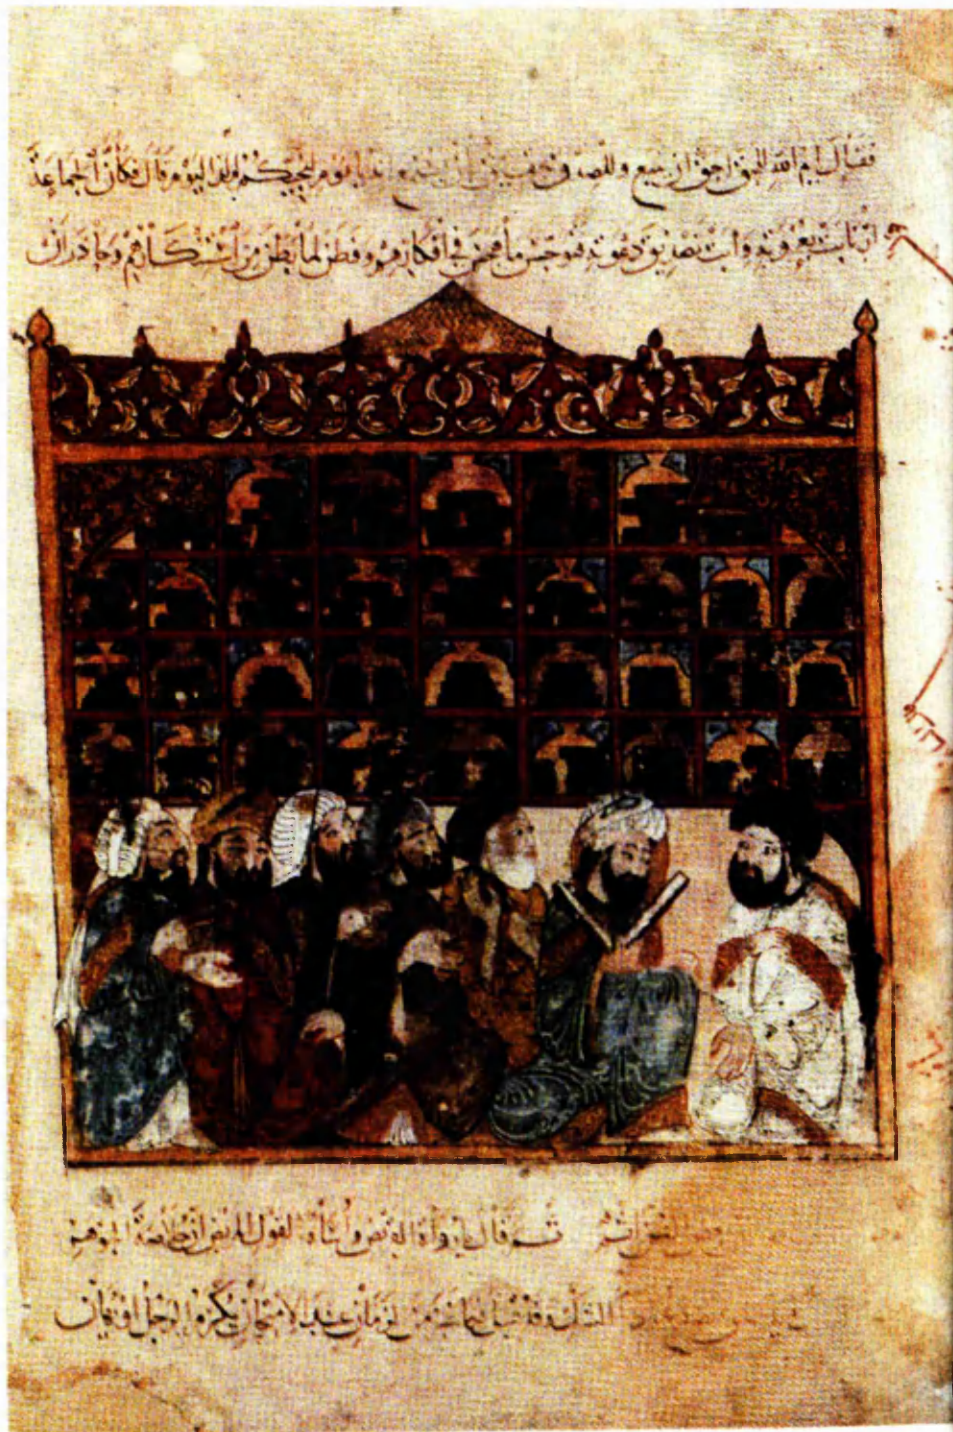 فقال ايم الله للحق احق ان يتبع وللصدق حقيق بأن يستمع انه يا قوم لنجيكم مذ اليوم قال فكأن الجماعة
ارتابت بعزوته وابت تصديق دعوته فتوجس ما هجس في افكارهم وفطن لما بطن من استنكارهم وحاذر ان
بعض الظن اثم ثم قال يا رواة القريض واساة القول المريض ان خلاصة الجوهر
الشك وقد قيل فيما غبر من الزمان عند الامتحان يكرم الرجل او يهان